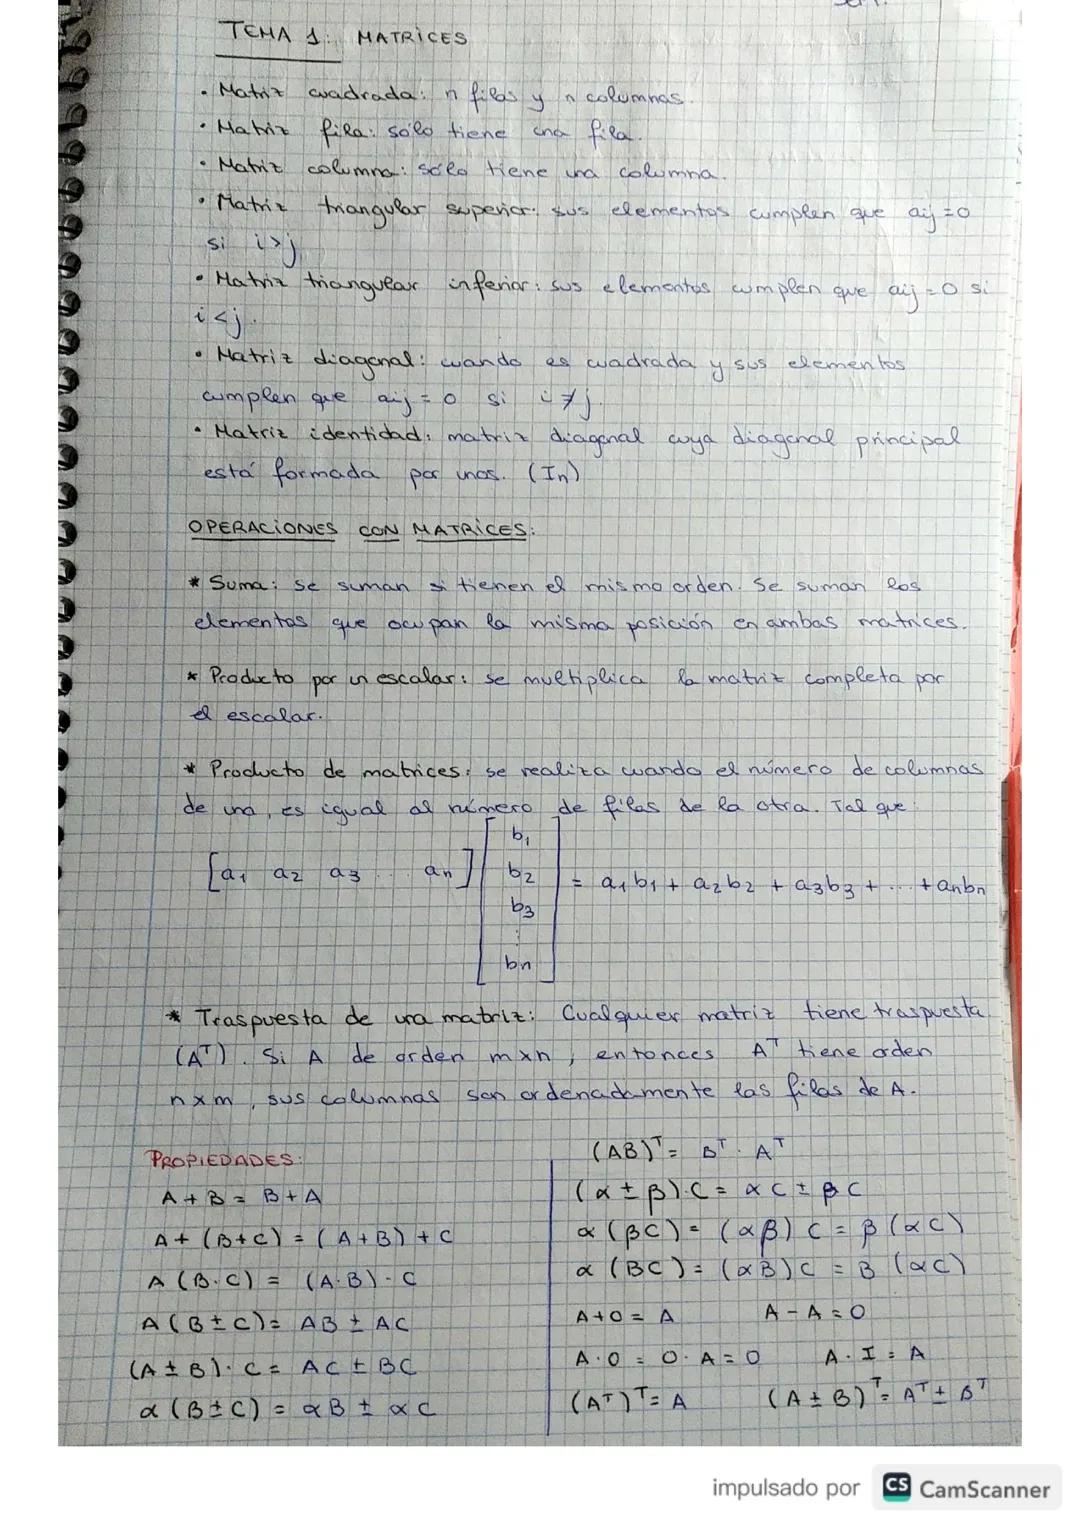 TEMA 1: MATRICES
• Matriz cuadrada: n filas y n columnas.
• Matriz fila: sólo tiene una fila.
• Matriz columna: sólo tiene una columna.
• Matriz triangular superior: sus elementos cumplen que aij=0
si i>j
• Matriz triangular inferior: sus elementos cumplen que aij=0 si
i<j.
• Matriz diagonal: cuando es cuadrada y sus elementos
cumplen que aij=0 si i≠j.
• Matriz identidad: matriz diagonal cuya diagonal principal
está formada por unos. (In)
OPERACIONES CON MATRICES:
* Suma: se suman si tienen el mismo orden. Se suman los
elementos que ocupan la misma posición en ambas matrices.
* Producto por un escalar: se multiplica la matriz completa por
el escalar.
* Producto de matrices: se realiza cuando el número de columnas
de una, es igual al número de filas de la otra. Tal que:
[a₁ a₂ a₃ ... an] [b₁ b₂ b₃ ⋮ bn] = a₁b₁ + a₂b₂ + a₃b₃ + ... + anbn
* Traspuesta de una matriz: Cualquier matriz tiene traspuesta
(Aᵀ). Si A de orden mxn, entonces Aᵀ tiene orden
nxm, sus columnas son ordenadamente las filas de A.
PROPIEDADES:
A+B = B+A
A+(B+C) = (A+B)+C
A(B·C) = (A·B)·C
A(B±C) = AB ± AC
(A±B)·C = AC ± BC
α(B±C) = αB ± αC
(AB)ᵀ = Bᵀ·Aᵀ
(α±β)·C = αC ± βC
α(βC) = (αβ)C = β(αC)
α(BC) = (αB)C = B(αC)
A+0 = A A-A=0
A·0 = 0·A = 0 A·I = A
(Aᵀ)ᵀ = A (A±B)ᵀ = Aᵀ ± Bᵀ
impulsado por CS CamScanner